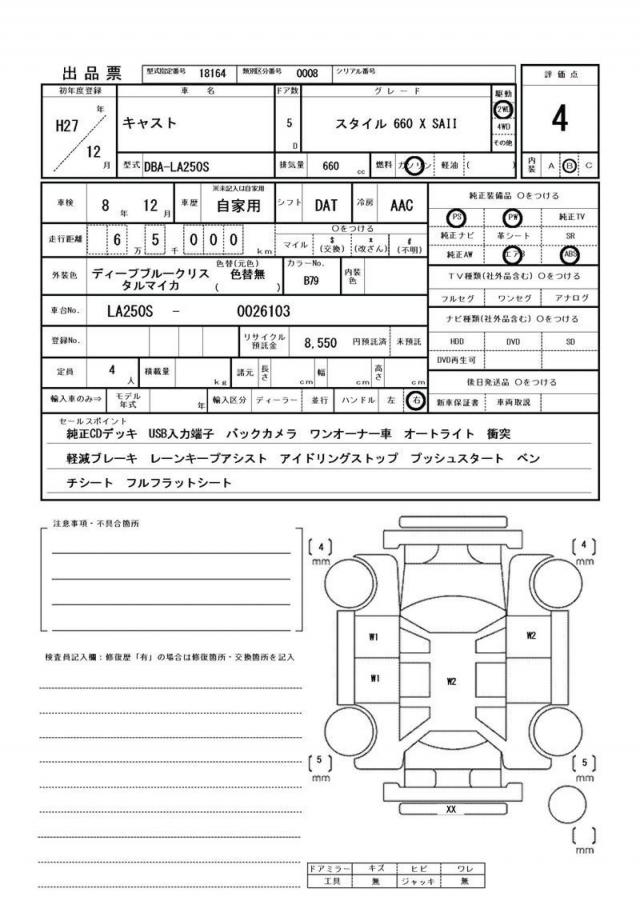 出品票 型式指定番号 18164 類別区分番号 0008 シリアル番号
初年度登録 車名 ドア数 グレード 駆動 評価点
H27 年 12 月 キャスト 5 D スタイル 660 X SAII 2WD 4WD その他 4
型式 DBA-LA250S 排気量 660 cc 燃料 ガソリン 軽油 ( ) 内装 A B C
車検 8 年 12 月 車歴 ※未記入は自家用 自家用 シフト DAT 冷房 AAC
純正装備品 ○をつける
走行距離 6 万 5 千 0 0 0 km ○をつける マイル $ (交換) x (改ざん) # (不明)
PS PW 純正TV
純正ナビ 革シート SR
純正AW エアB ABS
外装色 ディープブルークリスタルマイカ 色替(元色) 色替無 ( ) カラーNo. B79 内装色
TV種類(社外品含む) ○をつける
フルセグ ワンセグ アナログ
車台No. LA250S - 0026103
ナビ種類(社外品含む) ○をつける
登録No. リサイクル預託金 8,550 円預託済 未預託
HDD DVD SD
DVD再生可
定員 4 人 積載量 kg 諸元 長さ cm 幅 cm 高さ cm
後日発送品 ○をつける
輸入車のみ⇒ モデル年式 年 輸入区分 ディーラー 並行 ハンドル 左 右 新車保証書 車両取説
セールスポイント
純正CDデッキ USB入力端子 バックカメラ ワンオーナー車 オートライト 衝突
軽減ブレーキ レーンキープアシスト アイドリングストップ プッシュスタート ベン
チシート フルフラットシート
注意事項・不具合箇所
[4] mm
[4] mm
検査員記入欄:修復歴「有」の場合は修復箇所・交換箇所を記入
W1 W2
W1 W2
[5] mm
[5] mm
XX
[ ] mm
ドアミラー キズ ヒビ ワレ
工具 無 ジャッキ 無